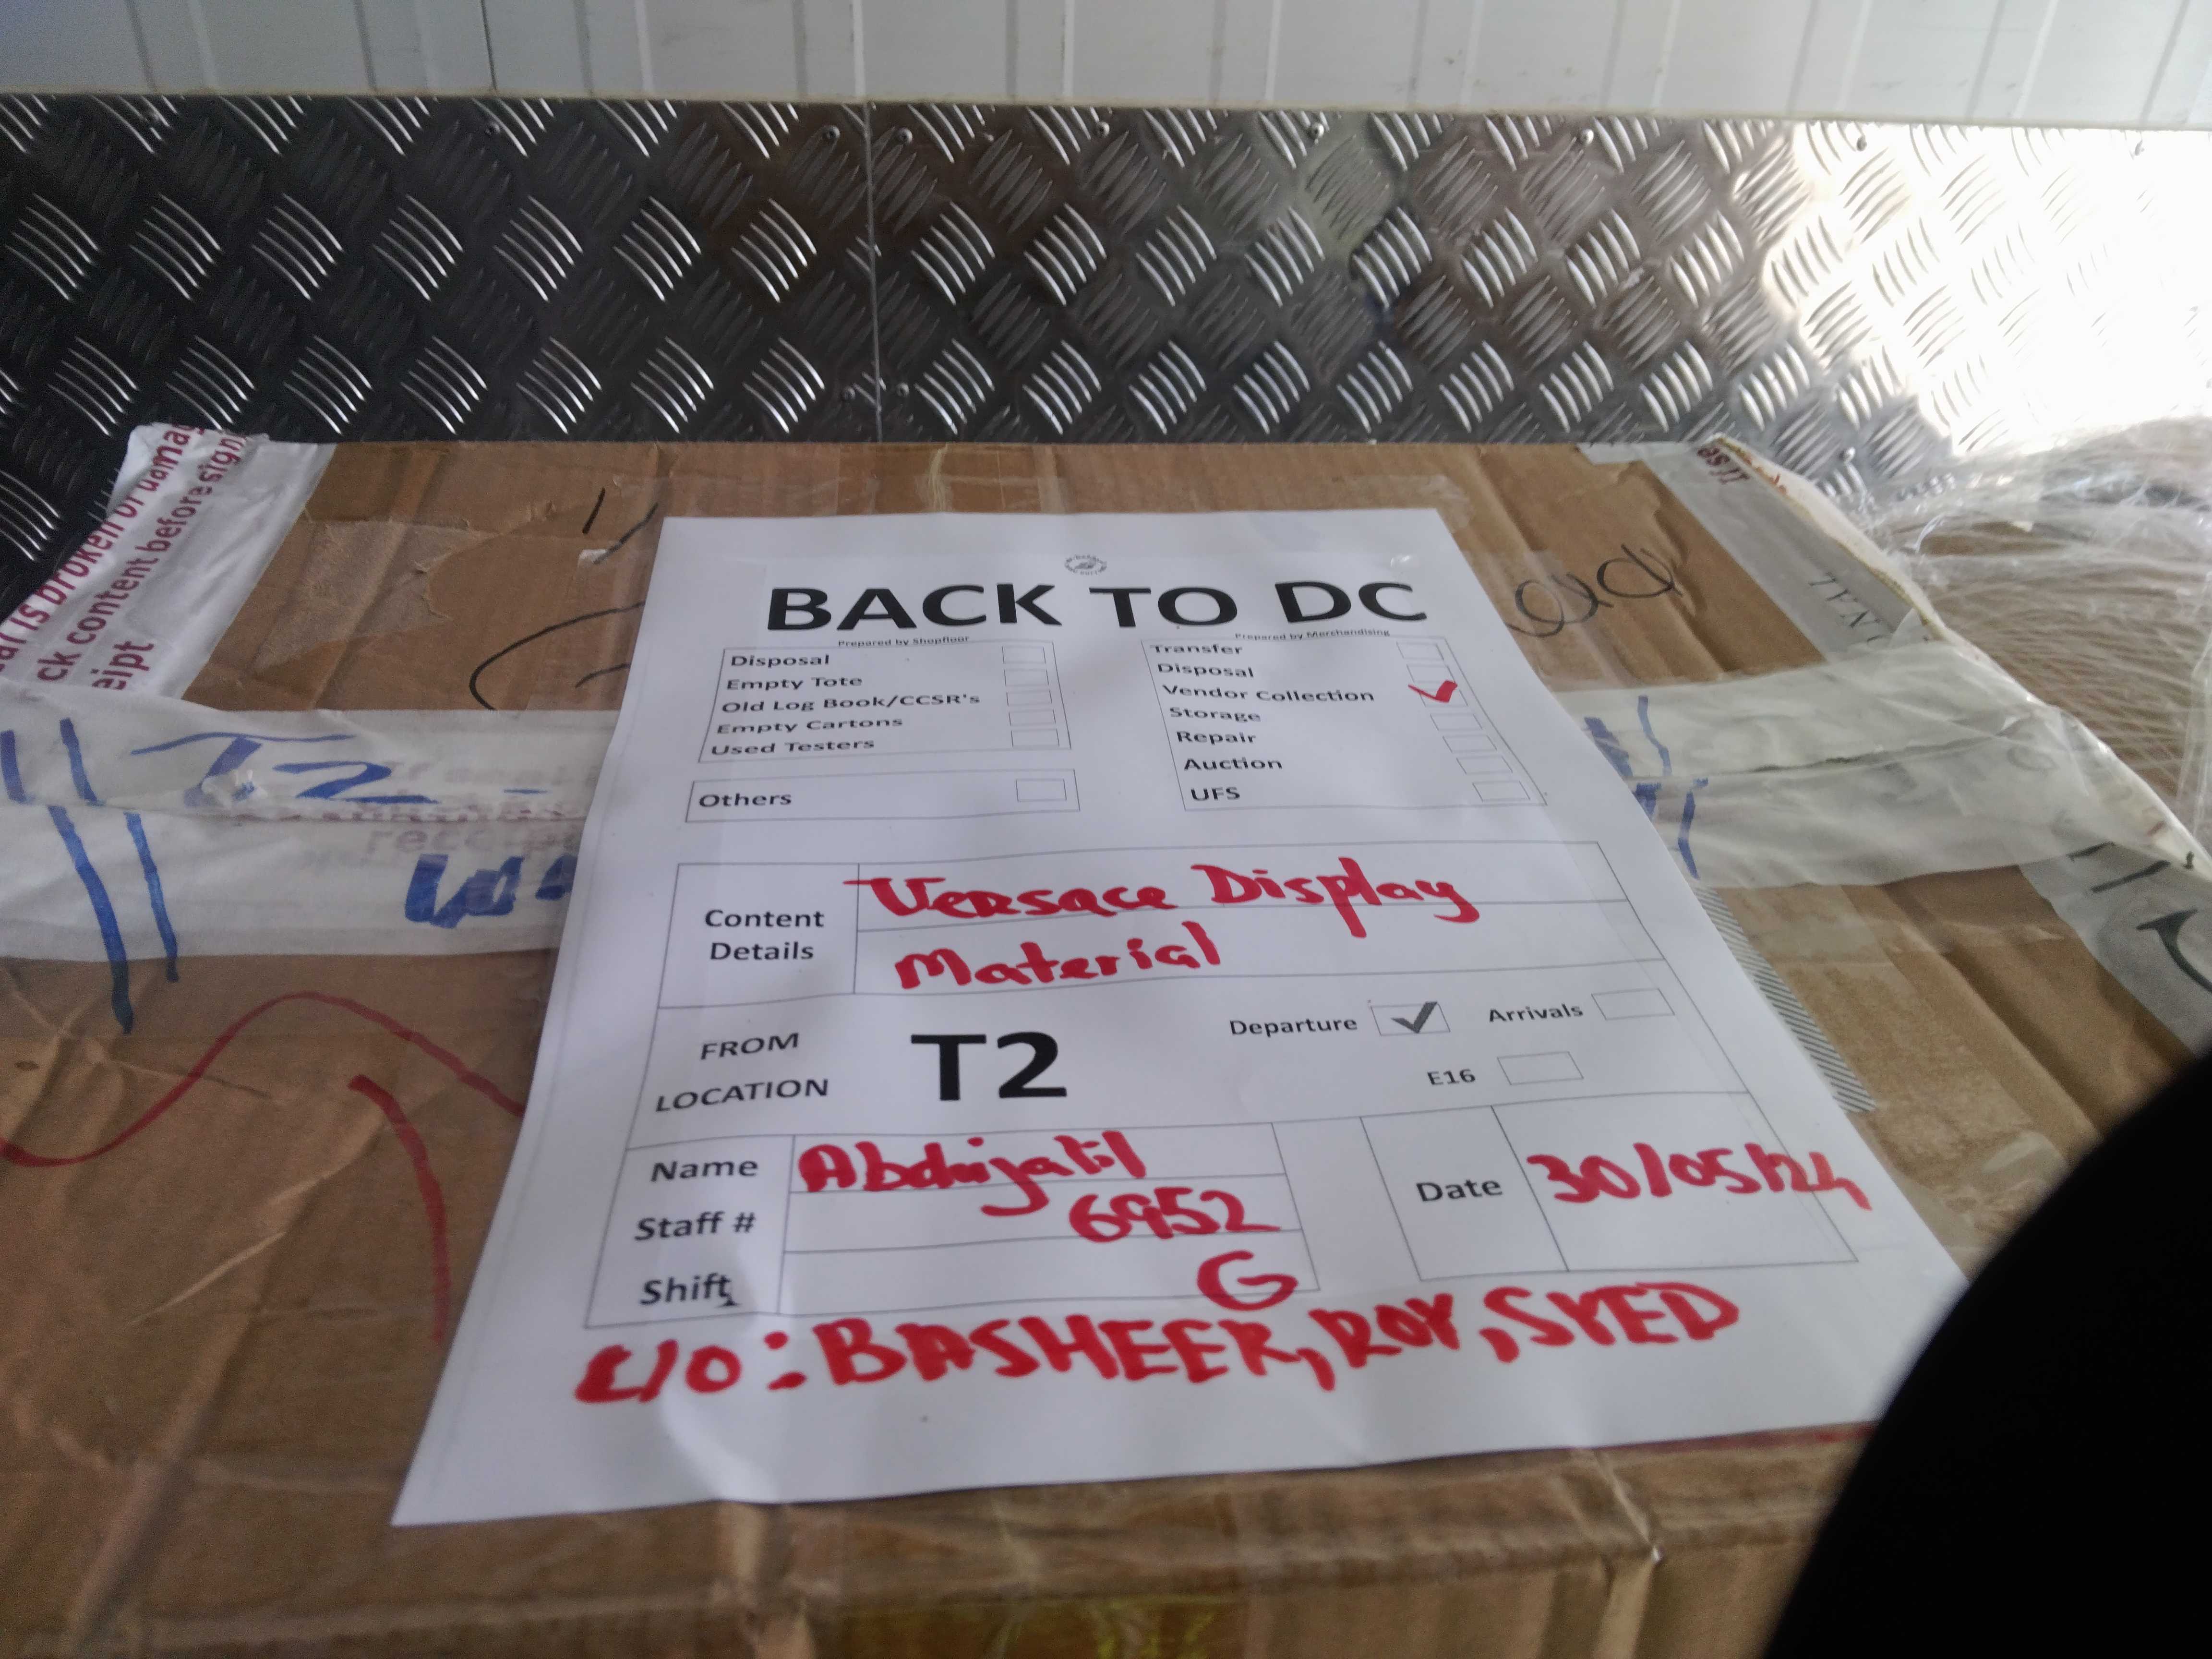 BACK TO DC
Prepared by Shopfloor
Disposal
Empty Tote
Old Log Book/CCSR's
Empty Cartons
Used Testers
Others
Prepared by Merchandising
Transfer
Disposal
Vendor Collection
Storage
Repair
Auction
UFS
Content Details
Versace Display
Material
FROM LOCATION
T2
Departure
Arrivals
E16
Name
Staff # 6952
Shift G
Date 30/05/24
C/O: BASHEER, ROY, SYED
is broken or
ck content before sign
eipt
T2